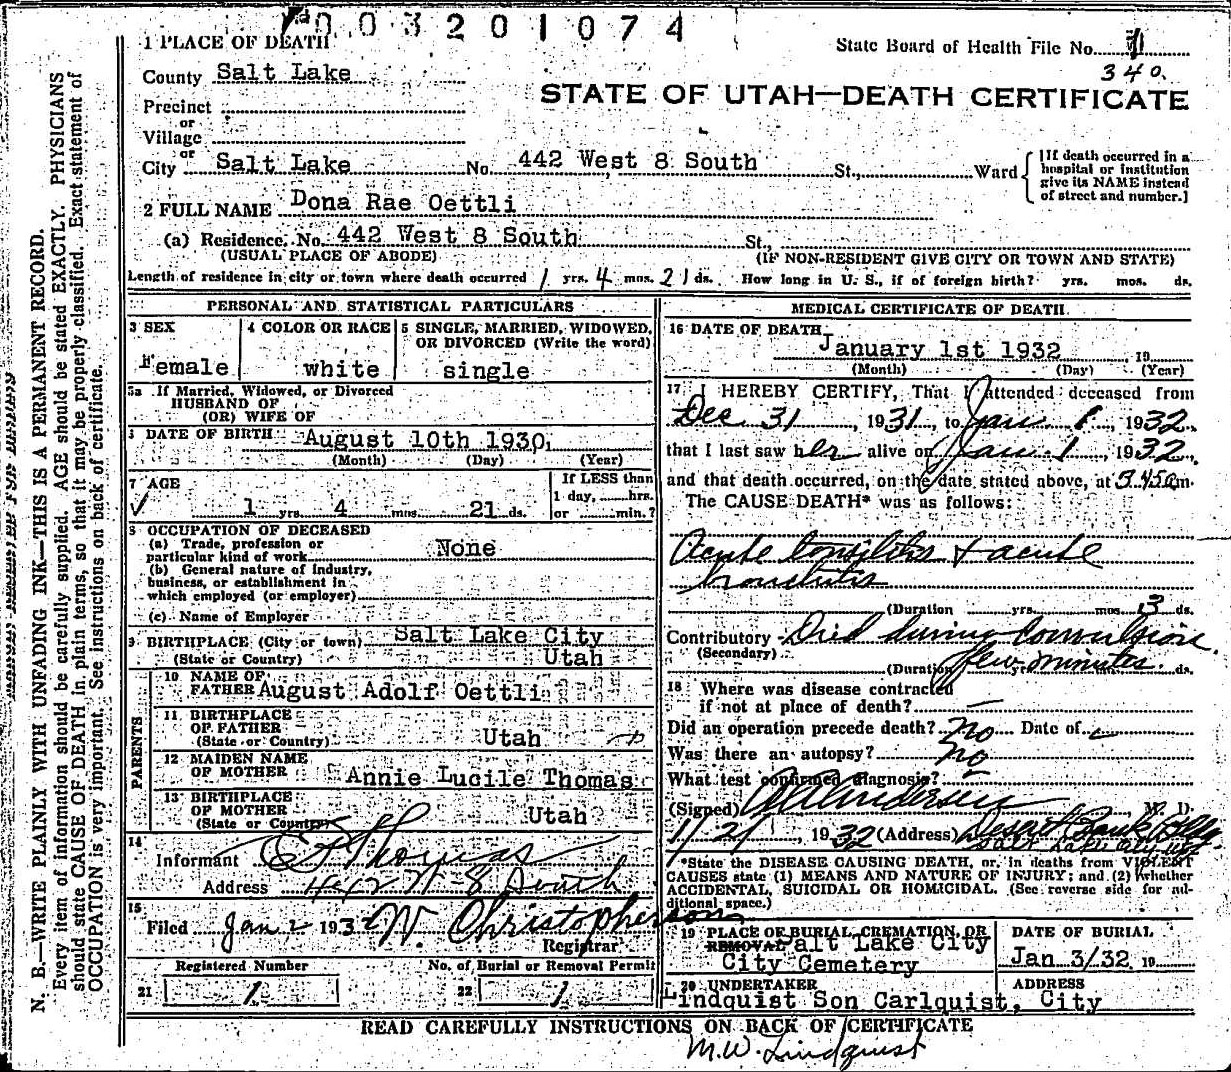 003201074
1 PLACE OF DEATH
State Board of Health File No. 1
340.
County Salt Lake
STATE OF UTAH—DEATH CERTIFICATE
Precinct
or
Village
or
City Salt Lake No. 442 West 8 South St., Ward
[If death occurred in a hospital or institution give its NAME instead of street and number.]
2 FULL NAME Dona Rae Oettli
(a) Residence. No. 442 West 8 South St.,
(USUAL PLACE OF ABODE) (IF NON-RESIDENT GIVE CITY OR TOWN AND STATE)
Length of residence in city or town where death occurred 1 yrs. 4 mos. 21 ds. How long in U. S., if of foreign birth? yrs. mos. ds.
PERSONAL AND STATISTICAL PARTICULARS
3 SEX
Female
4 COLOR OR RACE
white
5 SINGLE, MARRIED, WIDOWED, OR DIVORCED (Write the word)
single
5a If Married, Widowed, or Divorced
HUSBAND OF
(OR) WIFE OF
DATE OF BIRTH August 10th 1930,
(Month) (Day) (Year)
7 AGE
1 yrs. 4 mos. 21 ds.
If LESS than
1 day, hrs.
or min.?
8 OCCUPATION OF DECEASED
(a) Trade, profession or
particular kind of work None
(b) General nature of Industry,
business, or establishment in
which employed (or employer)
(c) Name of Employer
9 BIRTHPLACE (City or town) Salt Lake City
(State or Country) Utah
PARENTS
10 NAME OF
FATHER August Adolf Oettli
11 BIRTHPLACE
OF FATHER
(State or Country) Utah
12 MAIDEN NAME
OF MOTHER Annie Lucile Thomas
13 BIRTHPLACE
OF MOTHER
(State or Country) Utah
14
Informant Thomas
Address 442 W-8 South
15
Filed Jan 2 1932 W. Christopherson
Registrar
Registered Number
No. of Burial or Removal Permit
21 1
22 1
MEDICAL CERTIFICATE OF DEATH
16 DATE OF DEATH
January 1st 1932 19
(Month) (Day) (Year)
17 I HEREBY CERTIFY, That I attended deceased from
Dec 31, 1931, to Jan 1, 1932,
that I last saw her alive on Jan 1, 1932,
and that death occurred, on the date stated above, at 5.45am.
The CAUSE DEATH* was as follows:
Acute tonsilitis + acute
bronchitis
(Duration yrs. mos. 3 ds.
Contributory Died during convulsion.
(Secondary)
(Duration few minutes. ds.
18 Where was disease contracted
if not at place of death? —
Did an operation precede death? No Date of
Was there an autopsy? No
What test confirmed diagnosis?
(Signed) Andersen M. D.
1932 (Address) Deseret Bank Bldg.
Salt Lake City
*State the DISEASE CAUSING DEATH, or, in deaths from VIOLENT
CAUSES state (1) MEANS AND NATURE OF INJURY; and (2) whether
ACCIDENTAL, SUICIDAL OR HOMICIDAL. (See reverse side for additional space.)
19 PLACE OF BURIAL, CREMATION, OR
REMOVAL Salt Lake City
City Cemetery
DATE OF BURIAL
Jan 3/32. 19
20 UNDERTAKER
Lindquist Son Carlquist, City
ADDRESS
READ CAREFULLY INSTRUCTIONS ON BACK OF CERTIFICATE
M.W. Lindquist
N. B.—WRITE PLAINLY WITH UNFADING INK—THIS IS A PERMANENT RECORD.
Every item of information should be carefully supplied. AGE should be stated EXACTLY. PHYSICIANS
should state CAUSE OF DEATH in plain terms, so that it may be properly classified. Exact statement of
OCCUPATION is very important. See instructions on back of certificate.